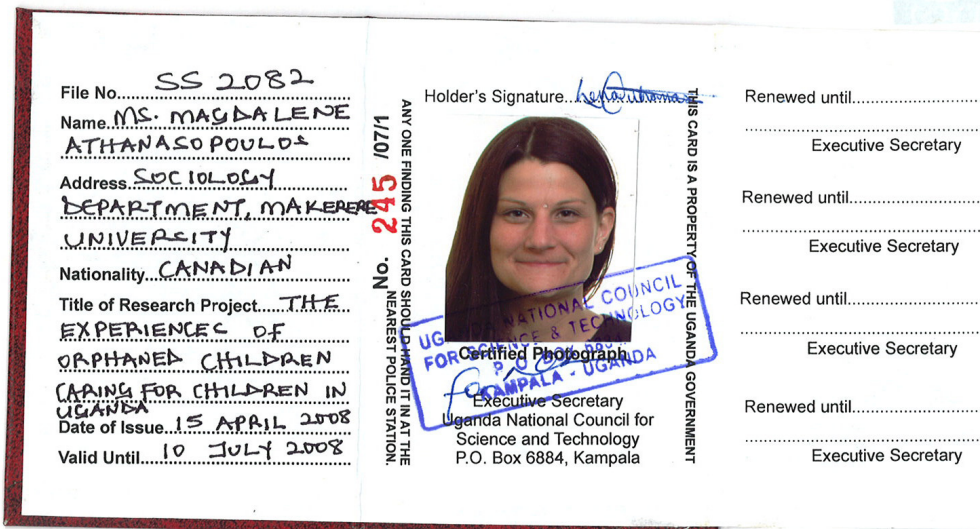 File No. SS 2082
Name. MS. MAGDALENE
ATHANASOPOULOS
Address. SOCIOLOGY
DEPARTMENT, MAKERERE
UNIVERSITY
Nationality. CANADIAN
Title of Research Project. THE
EXPERIENCES OF
ORPHANED CHILDREN
CARING FOR CHILDREN IN
UGANDA
Date of Issue. 15 APRIL 2008
Valid Until. 10 JULY 2008
No. 245 /07/1
ANY ONE FINDING THIS CARD SHOULD HAND IT IN AT THE
NEAREST POLICE STATION.
Holder's Signature
UGANDA NATIONAL COUNCIL
FOR SCIENCE & TECHNOLOGY
P. O. BOX
KAMPALA - UGANDA
Certified Photograph
for
Executive Secretary
Uganda National Council for
Science and Technology
P.O. Box 6884, Kampala
THIS CARD IS A PROPERTY OF THE UGANDA GOVERNMENT
Renewed until
Executive Secretary
Renewed until
Executive Secretary
Renewed until
Executive Secretary
Renewed until
Executive Secretary